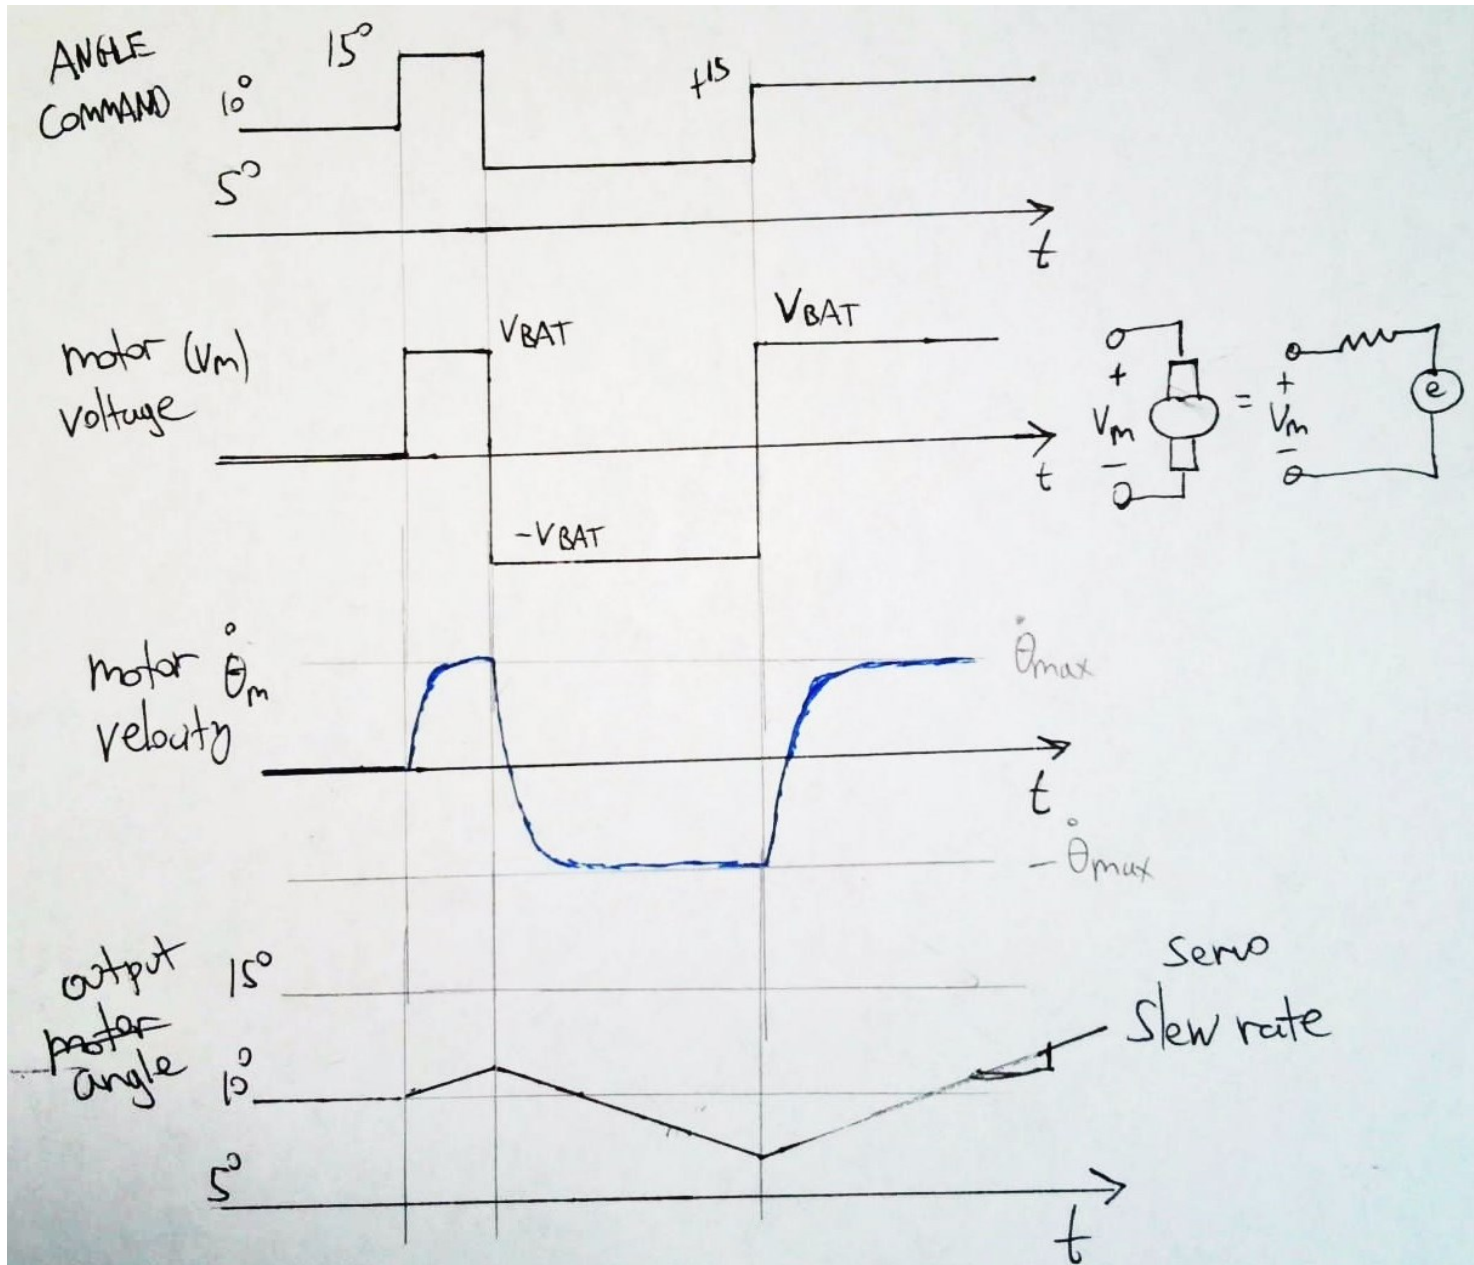 ANGLE
COMMAND
15°
10°
5°
+15
t
motor (Vm)
voltage
VBAT
VBAT
-VBAT
t
+
Vm
-
=
+
Vm
-
e
motor θ̇m
velocity
θ̇max
t
- θ̇max
output
motor
angle
15°
10°
5°
Servo
Slew rate
t